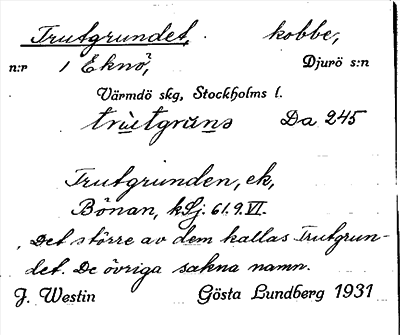 Trutgrundet, kobbe,
n:r 1 Eknö, Djurö s:n
Värmdö skg, Stockholms l.
trutgruns Da 245
Trutgrunden, ek,
Bönan, kSj. 61.9.VI.
Det större av dem kallas Trutgrun-
det. De övriga sakna namn.
J. Westin Gösta Lundberg 1931